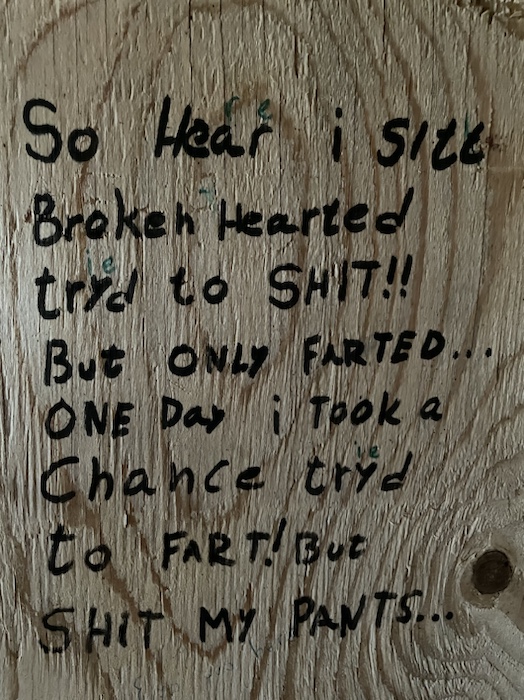 So Hear i sitt
Broken Hearted
tryd to SHIT!!
But ONLY FARTED...
ONE Day i Took a
Chance tryd
to FART! But
SHIT MY PANTS...